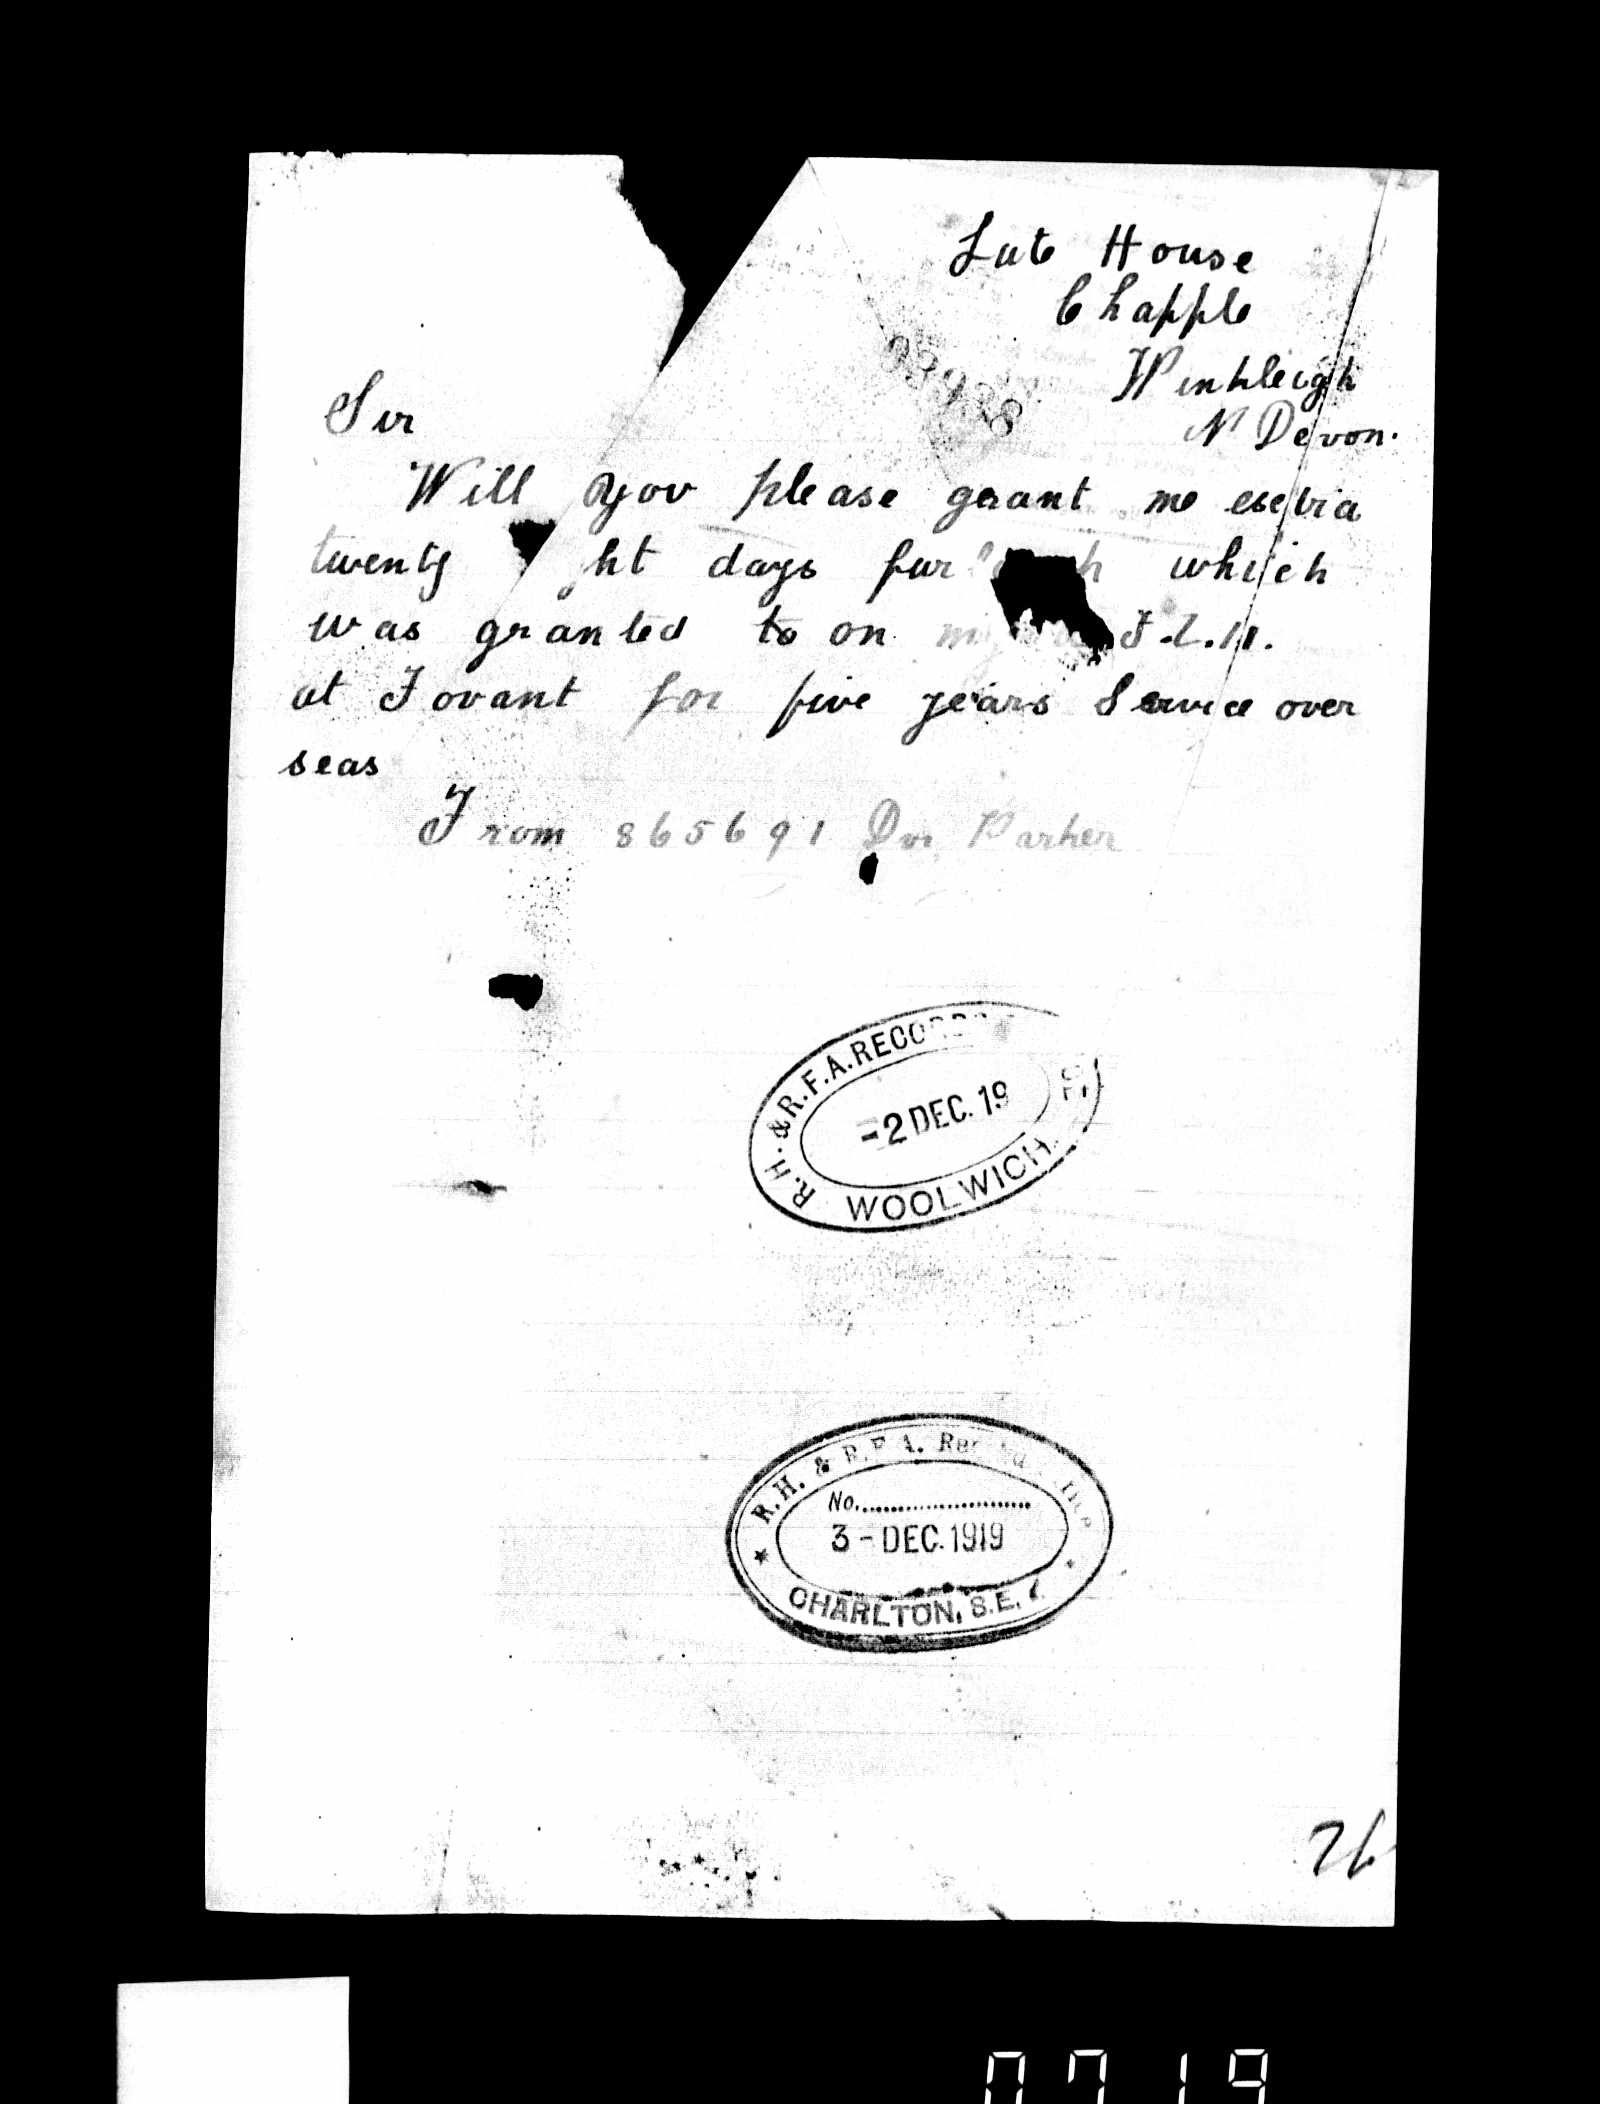 Late House
Chapple
Winkleigh
N Devon.
03988
Sir
Will you please grant me esetria
twenty ht days furl h which
was granted to on my
at Fovant for five years Service over
seas
From 865691 Dvr Parker
R.H. & R.F.A. RECORDS
-2 DEC. 19
WOOLWICH. SE
R.H. & R.F.A.
No.
3 - DEC. 1919
CHARLTON, S.E. 7.
0719